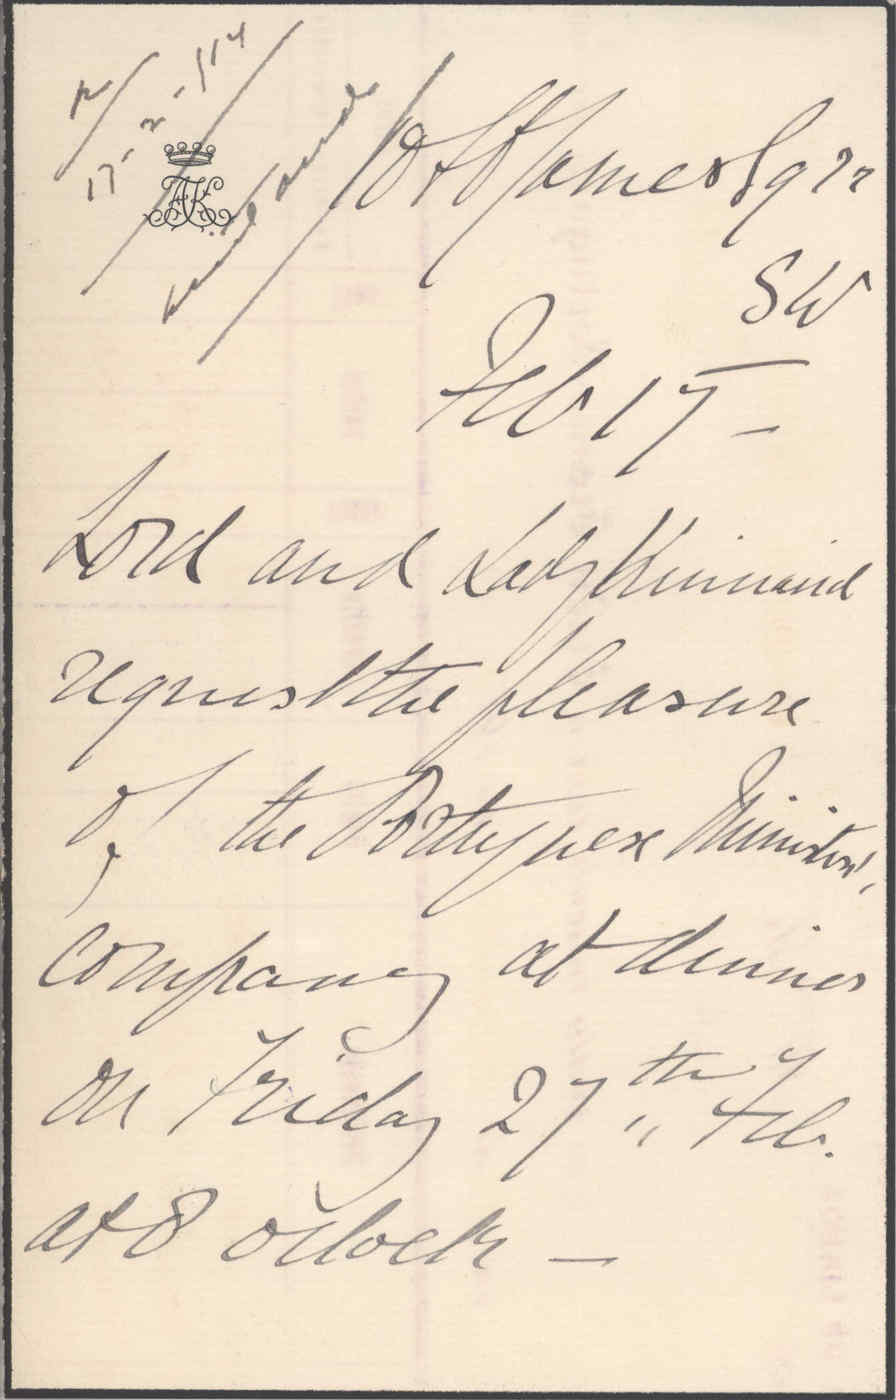 R/
17-2-/14
10 St James Sqre
SW
Feb 17 —
Lord and Lady Kinnaird
request the pleasure
of the Portuguese Minister's,
company at dinner
on Friday 27th Feb.
at 8 o'clock —